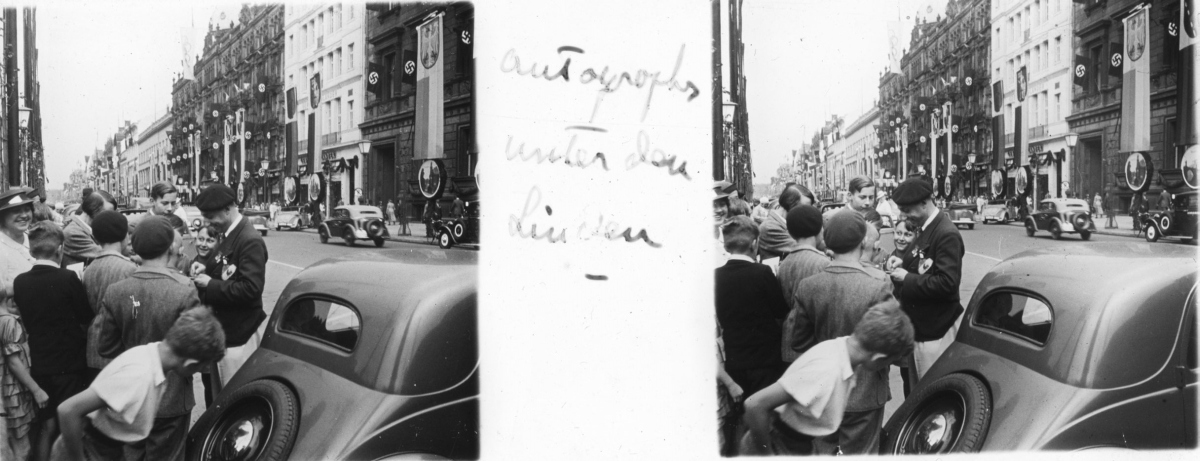 autographs
unter den
Linden